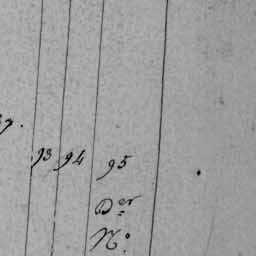 93 94 95
Der
No.